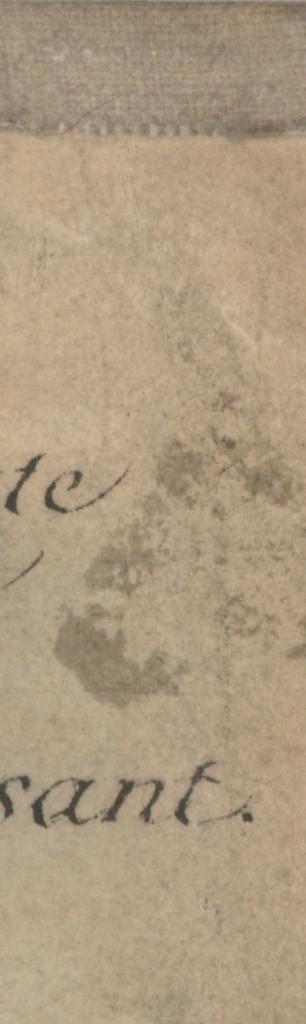 te
sant.